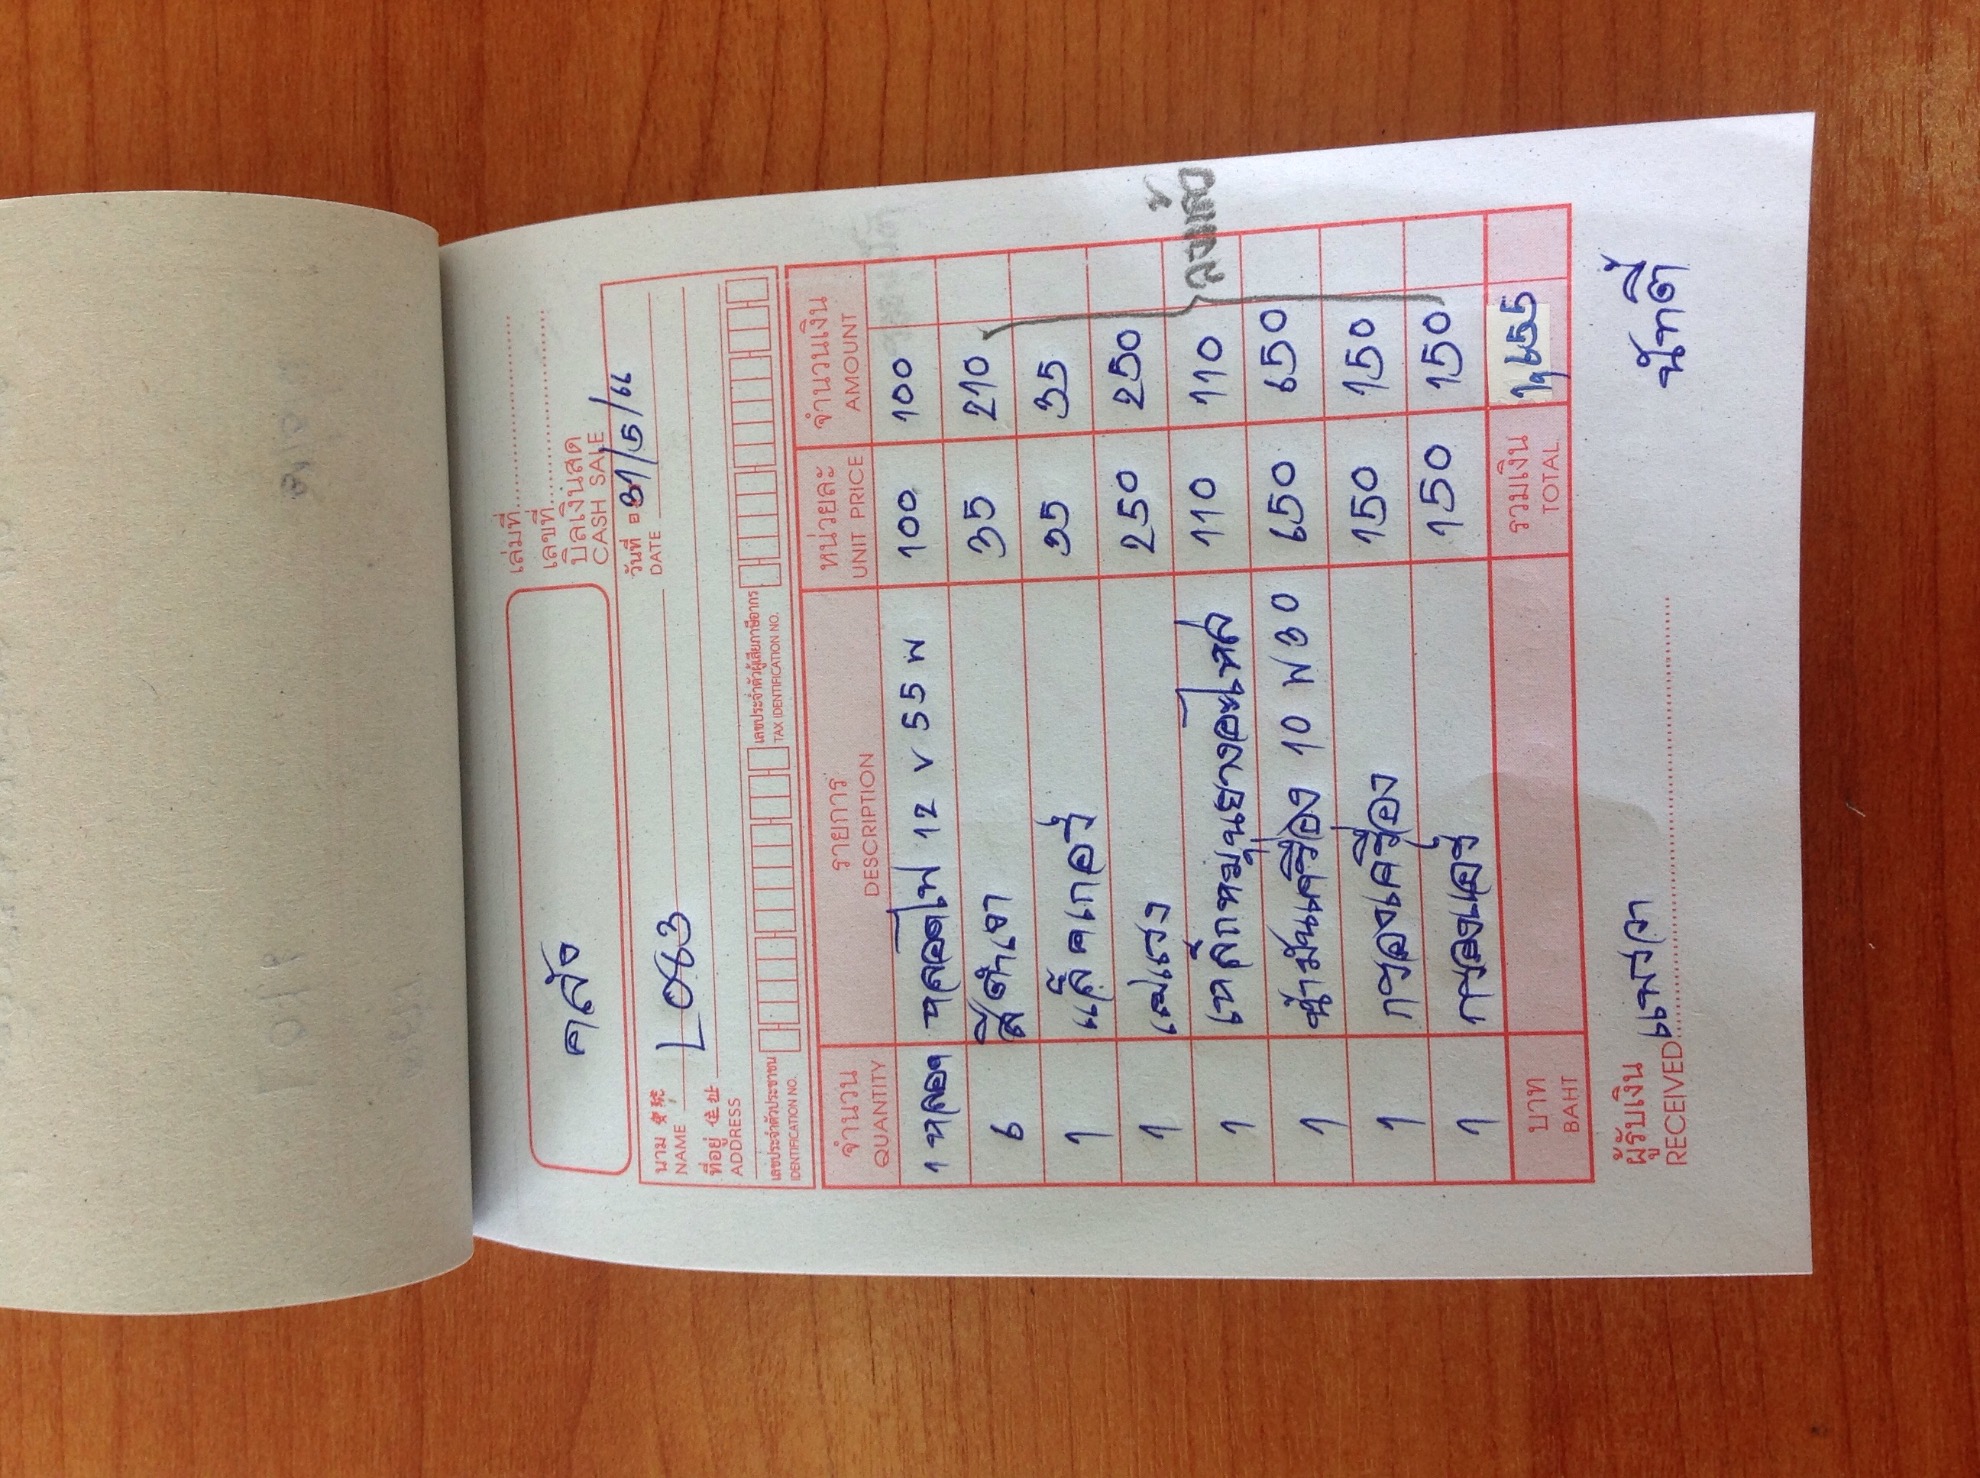 เล่มที่
เลขที่
บิลเงินสด
CASH SALE
คลัง
วันที่ 31/5/66
DATE
นาม L083
NAME
ที่อยู่ 住址
ADDRESS
เลขประจำตัวประชาชน เลขประจำตัวผู้เสียภาษีอากร
IDENTIFICATION NO. TAX IDENTIFICATION NO.
จำนวน รายการ หน่วยละ จำนวนเงิน
QUANTITY DESCRIPTION UNIT PRICE AMOUNT
1 หลอด หลอดไฟ 12 V 55 W 100 100
6 สีดำเงา 35 210
1 แล็คเกอร์ 35 35
1 250 250
1 110 110
1 น้ำมันเครื่อง 10 W 30 650 650
1 กรองเครื่อง 150 150
1 กรองแอร์ 150 150
ลงแล้ว
บาท รวมเงิน 1,655
BAHT TOTAL
ผู้รับเงิน แพรวา
RECEIVED